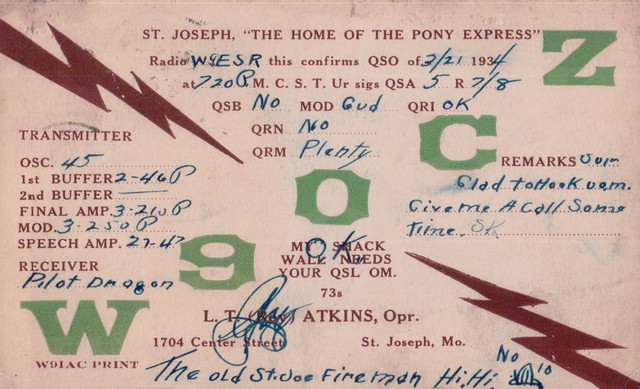 ST. JOSEPH, "THE HOME OF THE PONY EXPRESS"
Radio W9ESR this confirms QSO of 3/21 1934
at 720P M. C. S. T. Ur sigs QSA 5 R 7/8
QSB No MOD Gud QRI OK
QRN No
QRM Plenty
TRANSMITTER
OSC. 45
1st BUFFER 2-46 P
2nd BUFFER
FINAL AMP. 3-210 P
MOD. 3-250 P
SPEECH AMP. 27-47
RECEIVER
Pilot Dragon
REMARKS
Glad to Hook u om.
Give me A Call Some
Time. SK
W9OCZ
MY SHACK
WALL NEEDS
YOUR QSL OM.
OK
73s
L. T. (Roy) ATKINS, Opr.
1704 Center Street St. Joseph, Mo.
W9IAC PRINT
The old St. Joe Fireman Hi. Hi. No 10